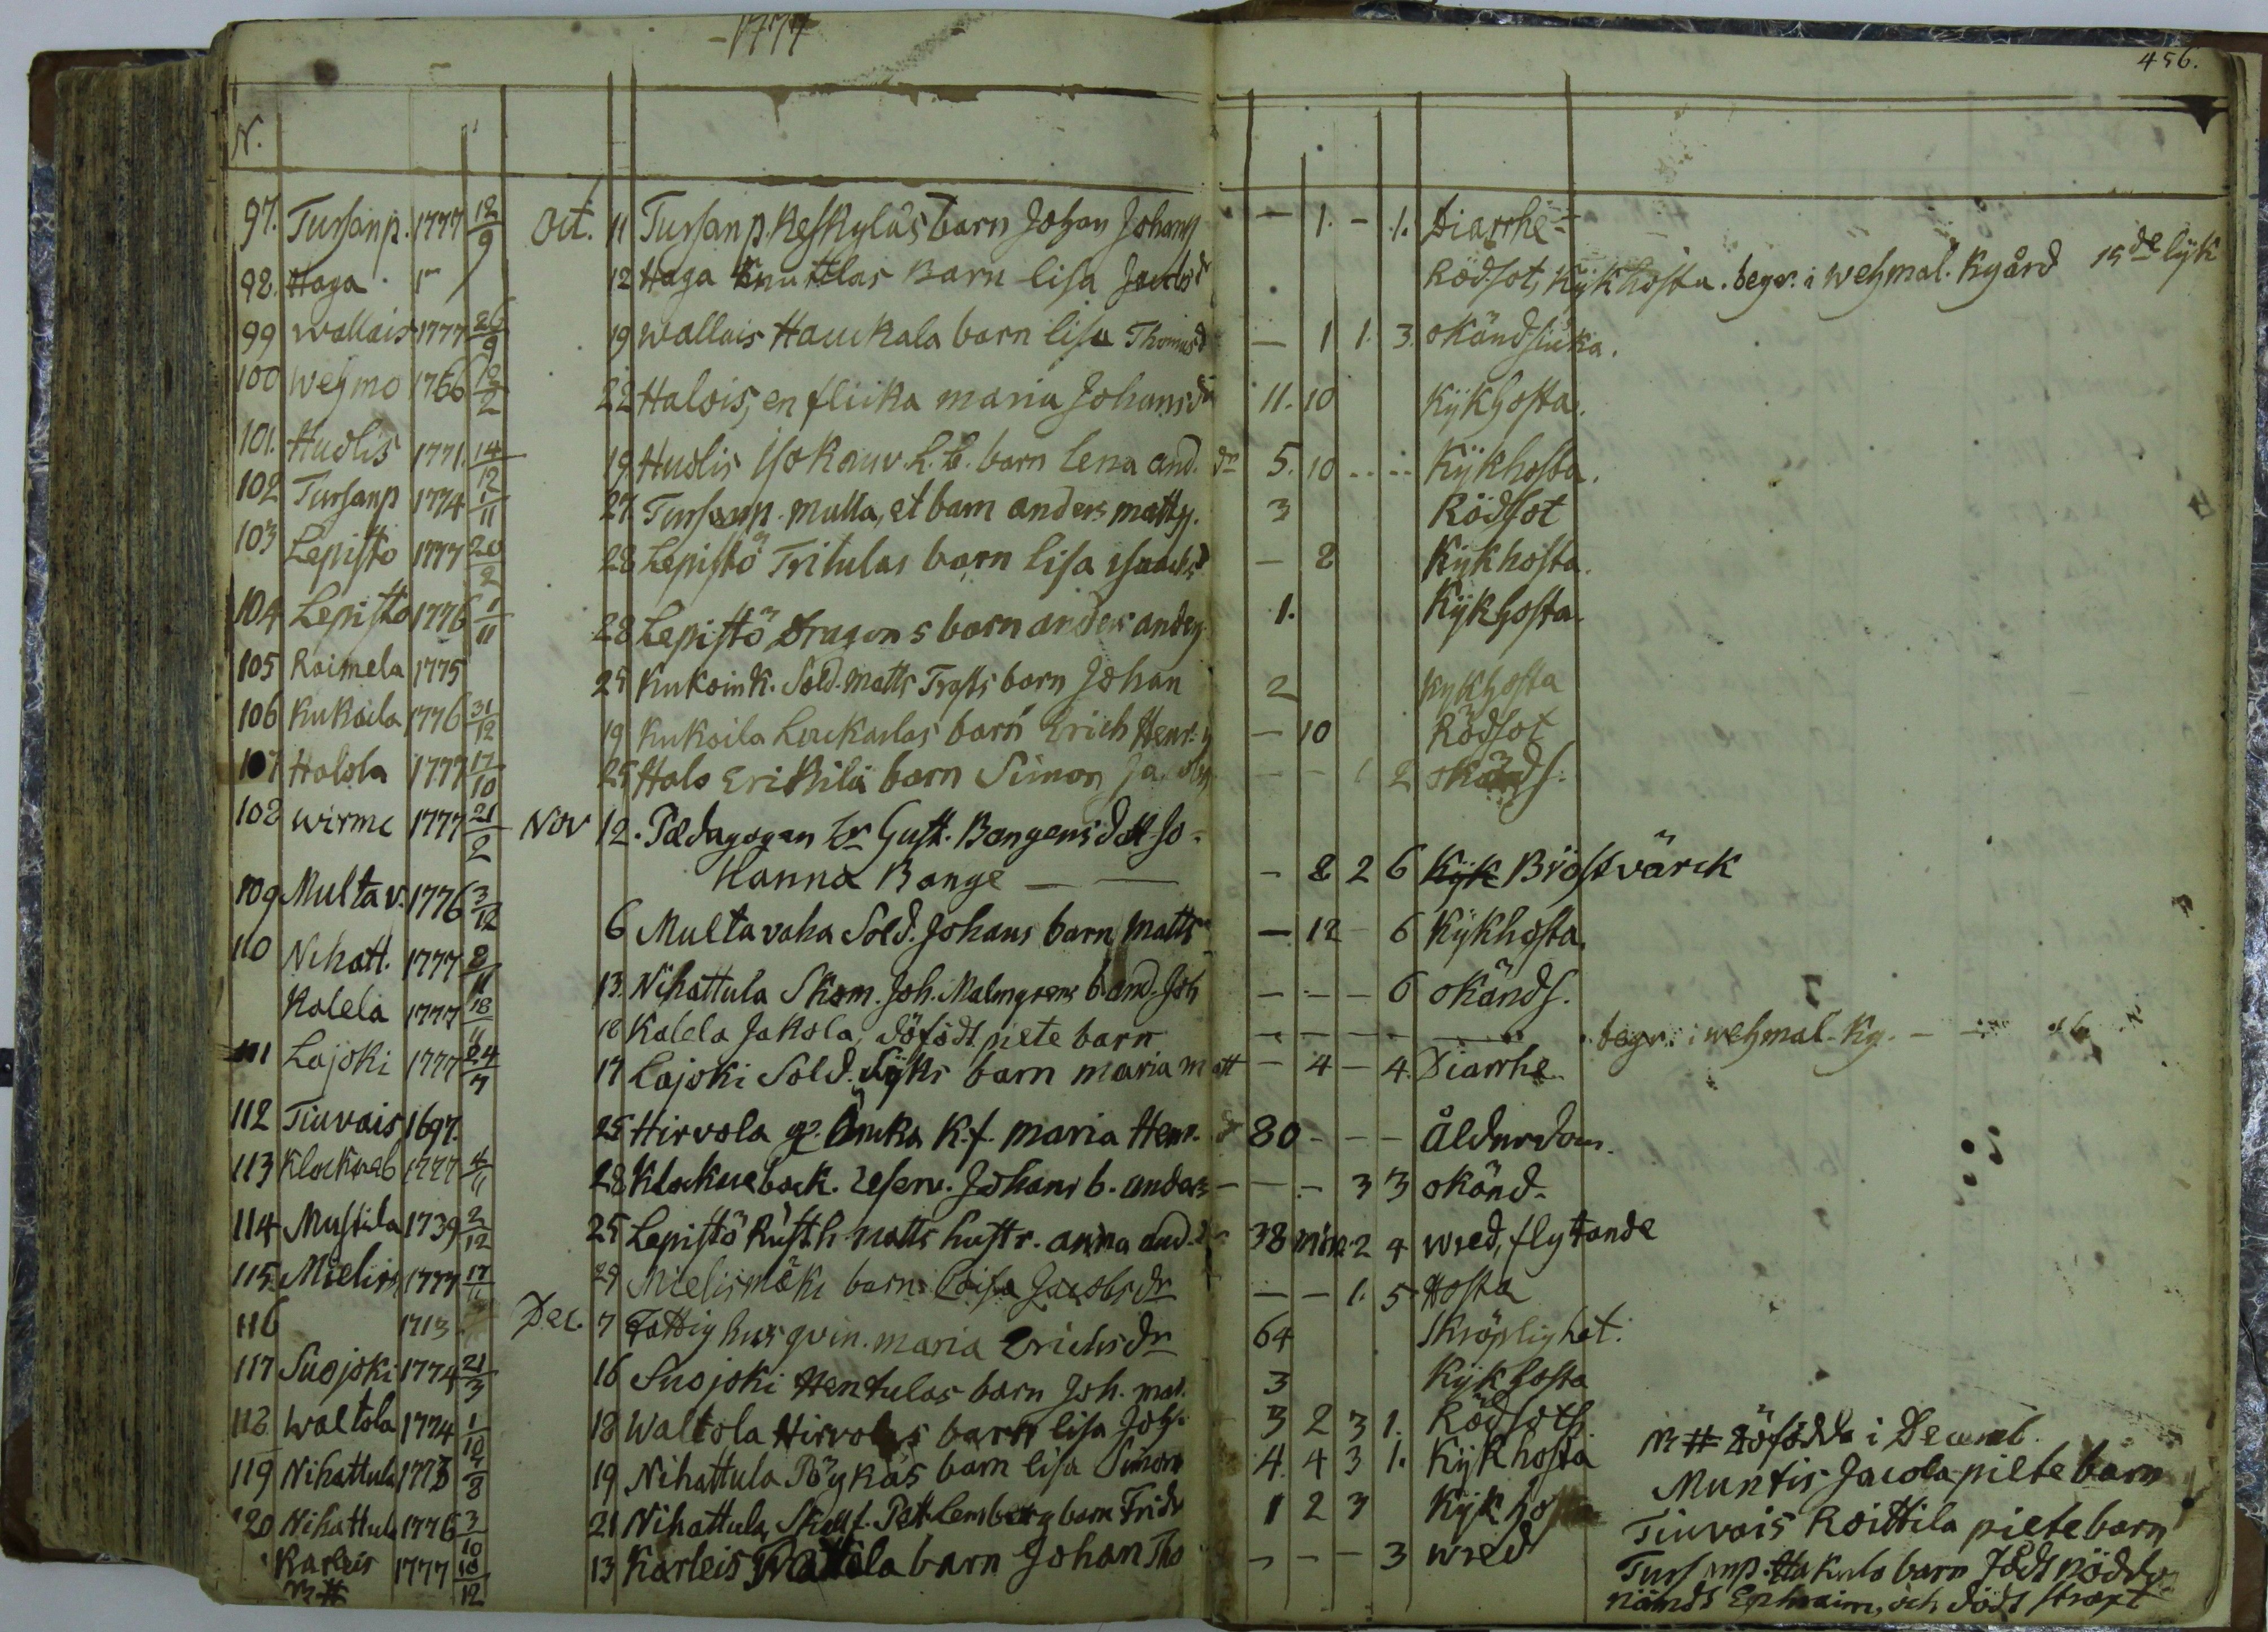 1777
456.
N.
97. Tursanp. 1777 12/9 Oct. 11 Tursanp. Keskyläs barn Johan Johanss - 1. - 1. Diarrhe
98. Haga 12 Haga Knuttlas Barn lisa Jacobsd Rödsot, Kykhosta. begr. i wehmal. Kgård 15de lyk
99 wallais 1777 26/9 19 wallais Haukala barn lisa Thomasd - 1 1. 3. okändsiuka.
100 wehmo 1766 12/2 22 Halois, en flicka maria Johansdr 11. 10 Kykhosta.
101. Huolis 1771. 14/12 19 Huolis Isokauv. h. b. barn lena and. dr 5. 10 Kykhosta.
102 Tursanp 1774 1/11 27. Tursanp. mulla, et barn anders matts. 3 Rödsot
103 Lepistö 1777 20/2 28 Lepistö Tritulas barn lisa isaacsd - 8 Kykhosta.
104 Lepistö 1776 1/11 28 Lepistö Dragons barn anders anders. 1. Kykhosta.
105 Raimela 1775 25 Kukoink. Sold. Matts Trosts barn Johan 2 Kykhosta
106 Kukoila 1776 31/12 19 Kukoila Loukaslas barn Erich Henr. - 10 Rödsot
107 Halola 1777 17/10 25 Halo Erikkilä barn Simon - - 1 2 okänds.
108 wirmo 1777 21/2 Nov 12. Pædagogen Hr Gust. Bangens dott. Jo-
Hanna Bange - 8 2 6 Kyk Bröstvärck
109 Multav. 1776 3/12 6 Multavaha Sold. Johans barn Matts - 12 - 6 Kykhosta.
110 Nihatt. 1777 8/11 13. Nihattula Skom. Joh. Malmgrens b. and. Joh - - - 6 okänds.
Kalela 1777 18/11 18 Kalela Jakola, döfödt pilte barn - - - - begr. i wehmal. Kg.
111 Lajoki 1777 24/7 17 Lajoki Sold. Syks barn maria matt - 4 - 4. Diarrhe.
112 Tiuvais 1697. 25 Hirvola K.f. maria Henr. dr 80 - - - Ålderdom.
113 Klockareb 1777 4/11 28 Klockareback. reserv. Johans b. anders - - - 3 3 okänd.
114 Mustila 1739 2/12 25 Lepistö Rusth. matts hustr. anna and. dr 38 mon 2 4 wred, flytande
115. Mielism 1777 17/11 29 Mielismäki barn Loisa Jacobsdr - - 1. 5 Hosta
116 1713 Dec. 7 Fattighus qvin. maria Erichsdr 64 Skröplighet.
117 Suojoki 1774 21/3 16 Suojoki Hentulas barn Joh. mat. 3 Kykhosta
118. waltola 1774 1/10 18 Waltola Hirvolas barn lisa Joh. 3 2 3 1. Rödsoth
119 Nihattula 1773 4/8 19 Nihattula Pöykäs barn lisa Simons 4. 4 3 1. Kykhosta
120 Nihattula 1776 3/10 21 Nihattula, Pet. Lemberg barn Fridr 1 2 3 Kykhosta
Karleis 1777 10/12 13 Karleis barn Johan Tho - - - 3 wred
N #
N # döfödda i Decemb.
Muntis Jacola pilte barn
Tiuvais Koittila pilte barn
Tursanp. barn född nöddo
nämdt Ephraim, och dödt straxt